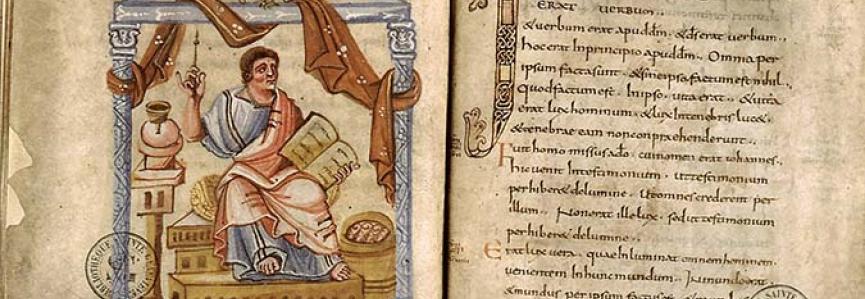 ERAT VERBUM
& verbum erat apud dm · & ds erat verbum ·
hoc erat Inprincipio apud dm · Omnia per
ipsum factasunt · & sineipso factum est nihil ·
Quod factum est · Inipso · vita erat · & vita
erat lux hominum · & lux Intenebris luc&
& tenebrae eam non conprehenderunt ·
Fuit homo missus ado · cui nomen erat iohannes ·
hic venit Intestimonium · Ut testimonium
perhiber& delumine · Ut omnes crederent per
illum · Nonerat ille lux · sed ut testimonium
perhiber& delumine ·
Erat lux vera · quae Inluminat omnem hominem
venientem Inhunc mundum · Inmundo erat
& mundus per ipsum factus est
BIBLIOTHÈQUE SAINTE GENEVIÈVE
SAINTE